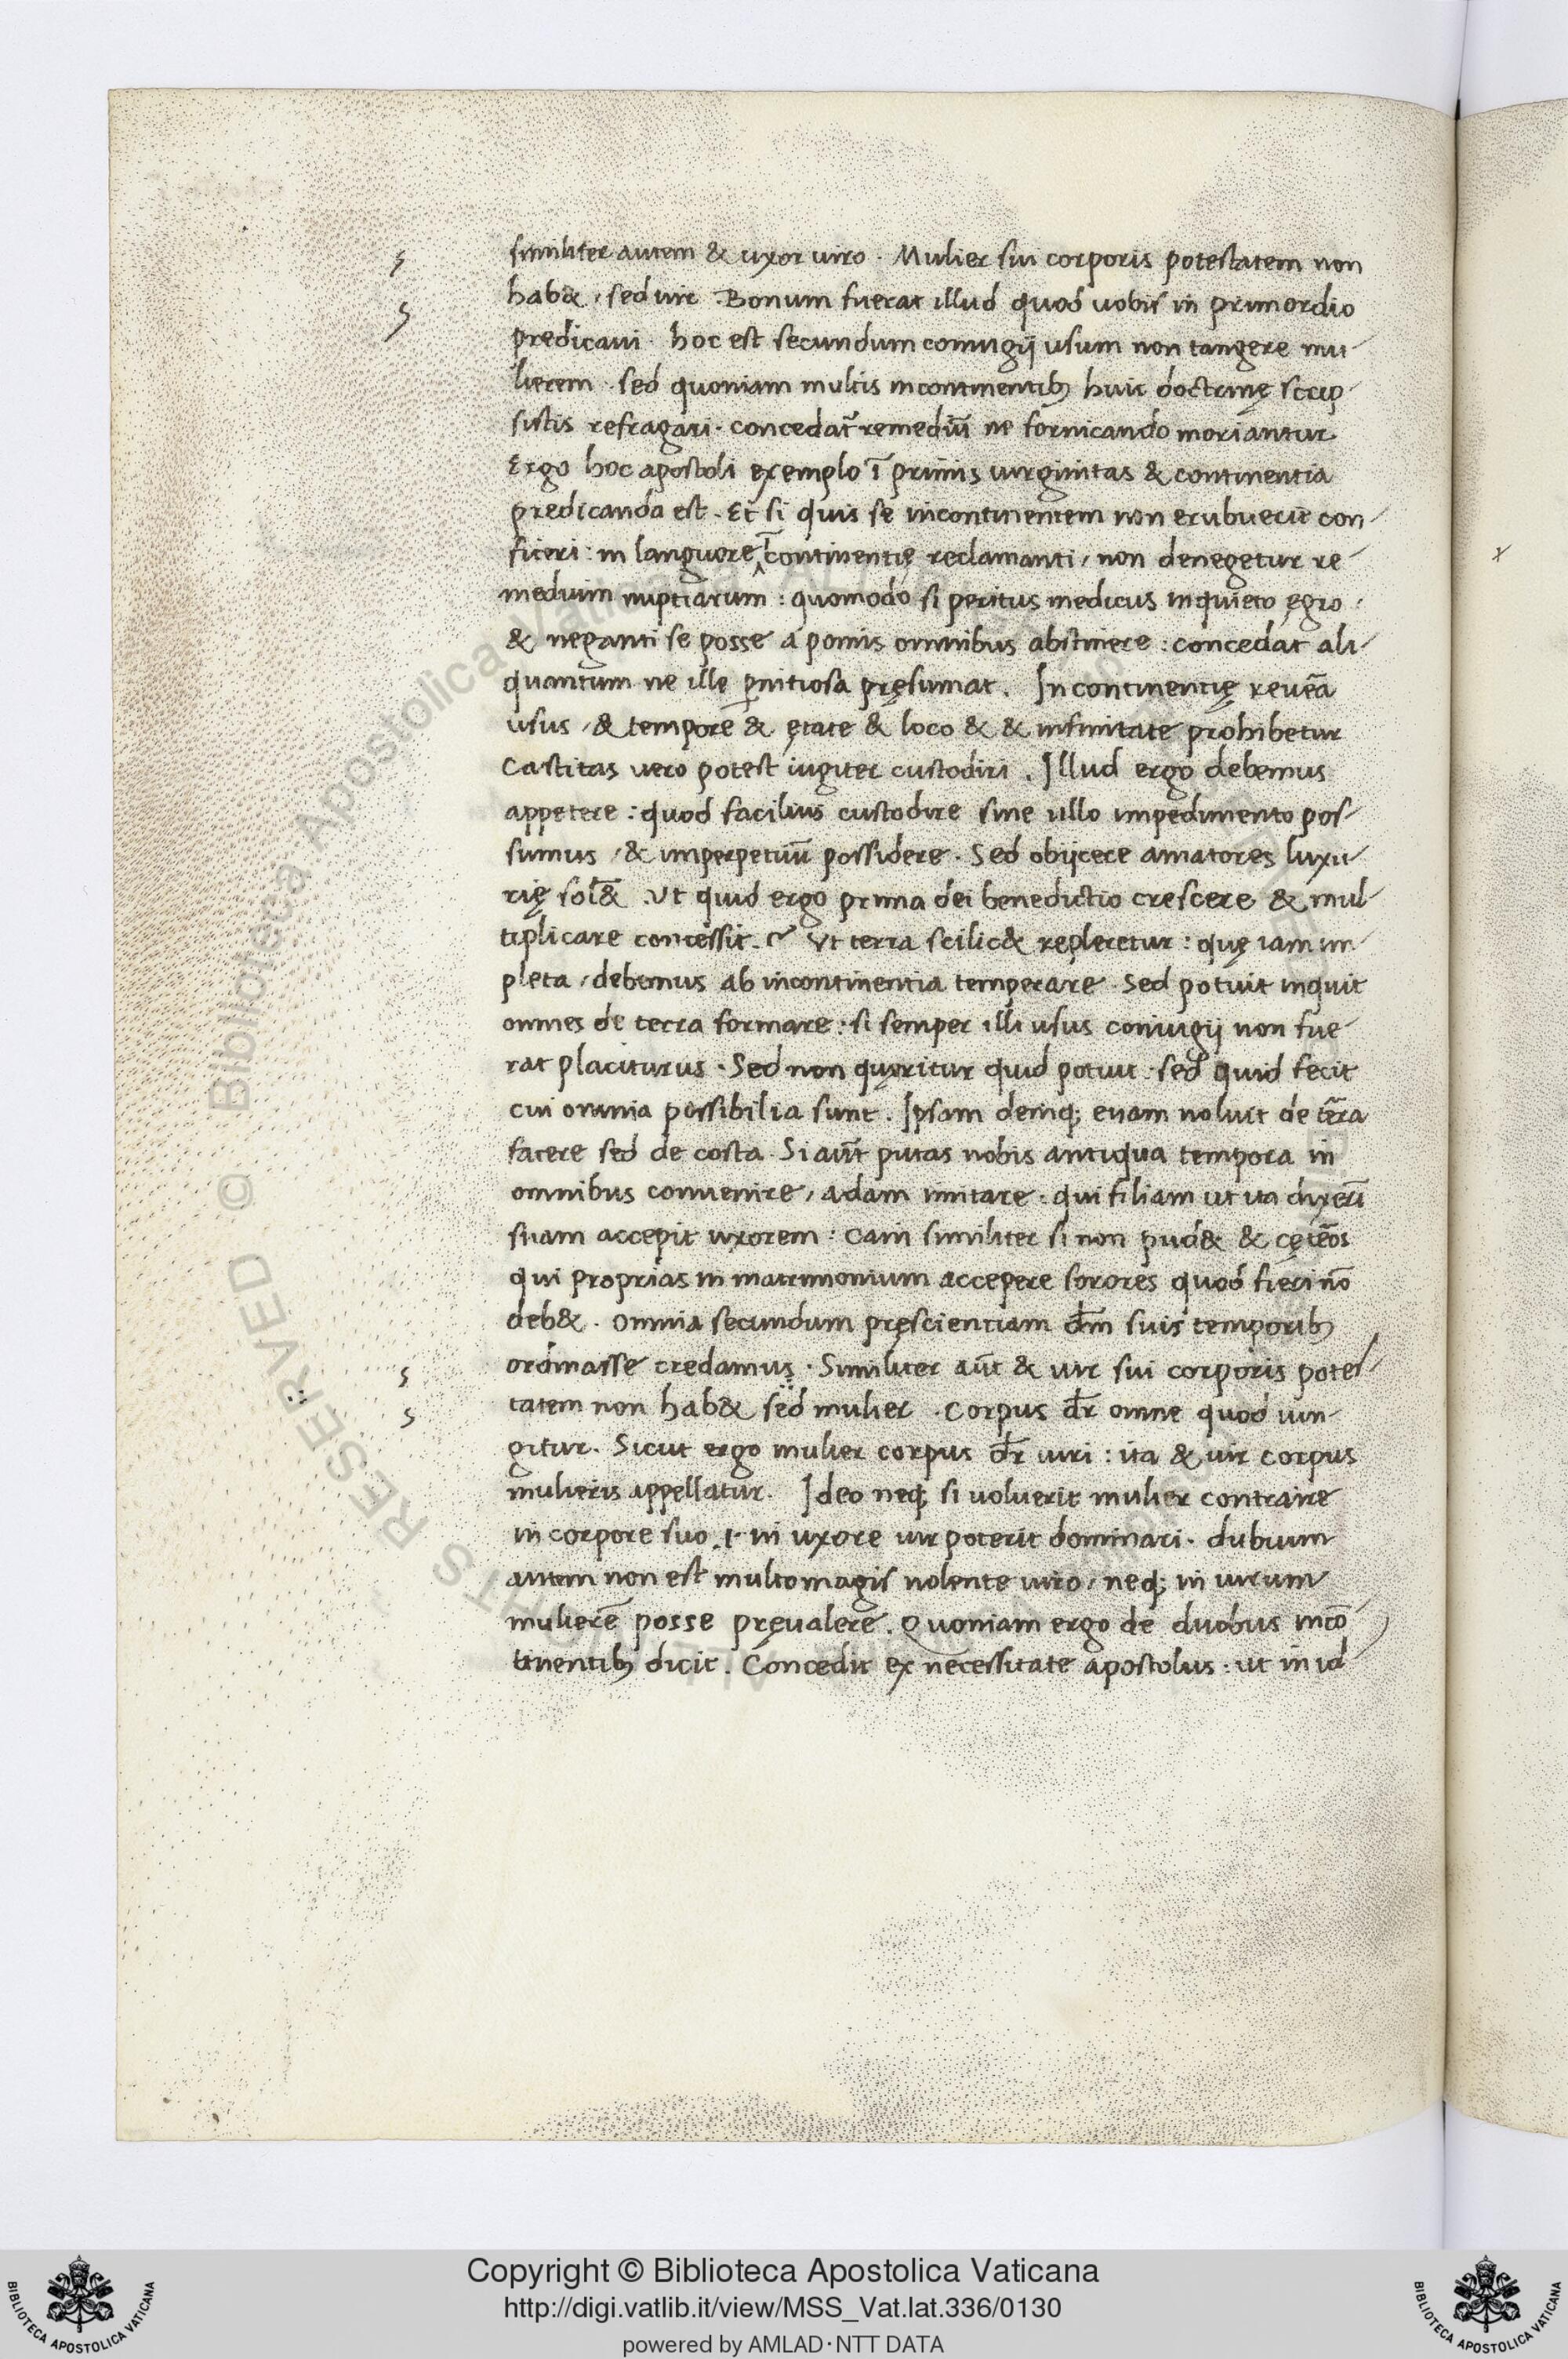 similiter autem & uxor uiro . Mulier sui corporis potestatem non
hab& , sed uir . Bonum fuerat illud quod uobis in primordio
predicaui . hoc est secundum coniugij usum non tangere mu-
lierem . sed quoniam multis incontinentibꝫ huic doctrinę scrip-
sistis refragari . concedat᷑ remediū ne fornicando moriantur
Ergo hoc apostoli exemplo ī primis uirginitas & continentia
predicanda est . Et si quis se incontinentem non erubuerit con-
fiteri : in languore īcontinentię reclamanti , non denegetur re-
medium nuptiarum : quomodo si peritus medicus inquieto ęgro :
& neganti se posse a pomis omnibus abstinere : concedat ali-
quantum ne ille ꝑnitiosa pręsumat . Incontinentię reuēa
usus , & tempore & ętate & loco & & infinitate prohibetur
Castitas uero potest iugiter custodiri . Illud ergo debemus
appetere : quod facilius custodire sine ullo impedimento pos-
sumus , & imperpetuū possidere . Sed obijcere amatores luxu-
rię sol̄& . Ut quid ergo prima dei benedictio crescere & mul-
tiplicare concessit . Ut terra scilic& repleretur : quę iam im-
pleta , debemus ab incontinentia temperare . Sed potuit inquit
omnes de terra formare : si semper illi usus coniugij non fue-
rat placiturus . Sed non quęritur quid potuit . sed quid fecit
cui omnia possibilia sunt . Ipsam deniqꝫ euam noluit de tēra
facere sed de costa . Si aūt putas nobis antiqua tempora in
omnibus conuenire , adam imitare . qui filiam ut ita dixerī
suam accepit uxorem : Cain similiter si non pud& & cętēos
qui proprias in matrimonium accepere sorores quod fieri nō
deb& . omnia secundum pręscientiam dm̄ suis temporibꝫ
ordinasse credamus . Similiter aūt & uir sui corporis potes-
tatem non hab& sed mulier . Corpus dr̄ omne quod iun-
gitur . Sicut ergo mulier corpus dr̄ uiri : ita & uir corpus
mulieris appellatur . Ideo neqꝫ si uoluerit mulier contraire
in corpore suo .i. in uxore uir poterit dominari . dubium
autem non est multomagis nolente uiro , neqꝫ in uirum
mulierē posse pręualere . Quoniam ergo de duobus incō
tinentibꝫ dicit . Concedit ex necessitate apostolus . ut in id
Copyright © Biblioteca Apostolica Vaticana
http://digi.vatlib.it/view/MSS_Vat.lat.336/0130
powered by AMLAD·NTT DATA
BIBLIOTECA APOSTOLICA VATICANA
BIBLIOTECA APOSTOLICA VATICANA